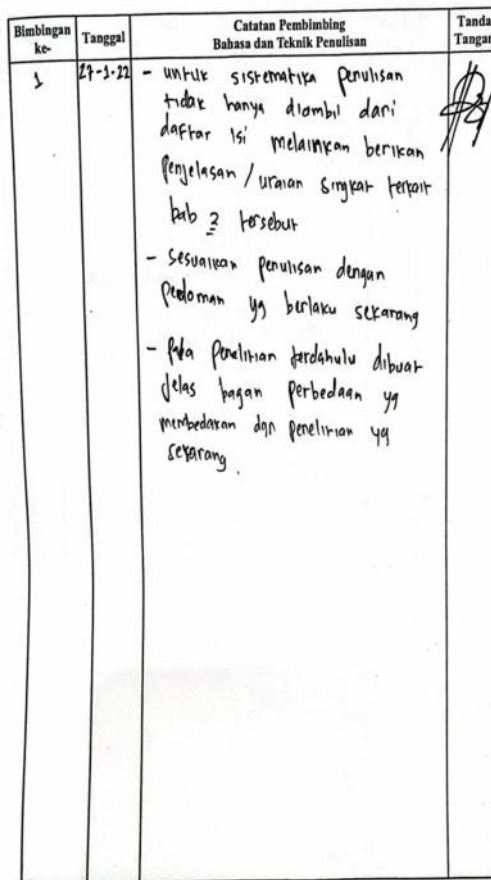 Bimbingan ke-
Tanggal
Catatan Pembimbing
Bahasa dan Teknik Penulisan
Tanda Tangan
1
27-1-22
- untuk sistematika penulisan
tidak hanya diambil dari
daftar isi melainkan berikan
penjelasan / uraian singkat terkait
bab 2 tersebut
- Sesuaikan penulisan dengan
pedoman yg berlaku sekarang
- Pada penelitian terdahulu dibuat
jelas bagan perbedaan yg
membedakan dgn penelitian yg
sekarang.